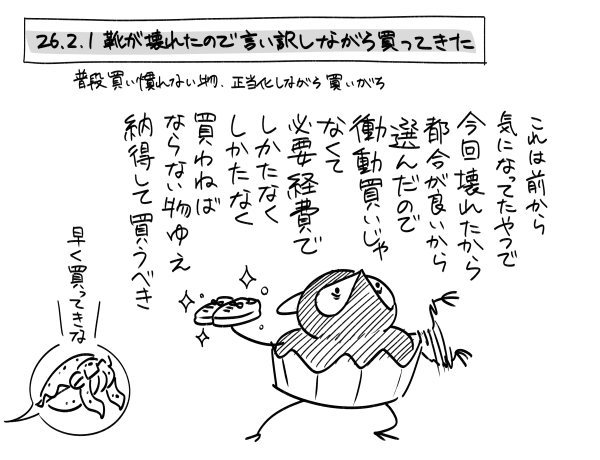 26.2.1 靴が壊れたので言い訳しながら買ってきた
普段買い慣れない物、正当化しながら買いがち
これは前から
気になってたやつで
今回壊れたから
都合が良いから
選んだので
衝動買いじゃ
なくて
必要経費で
しかたなく
しかたなく
買わねば
ならない物ゆえ
納得して買うべき
早く買ってきな